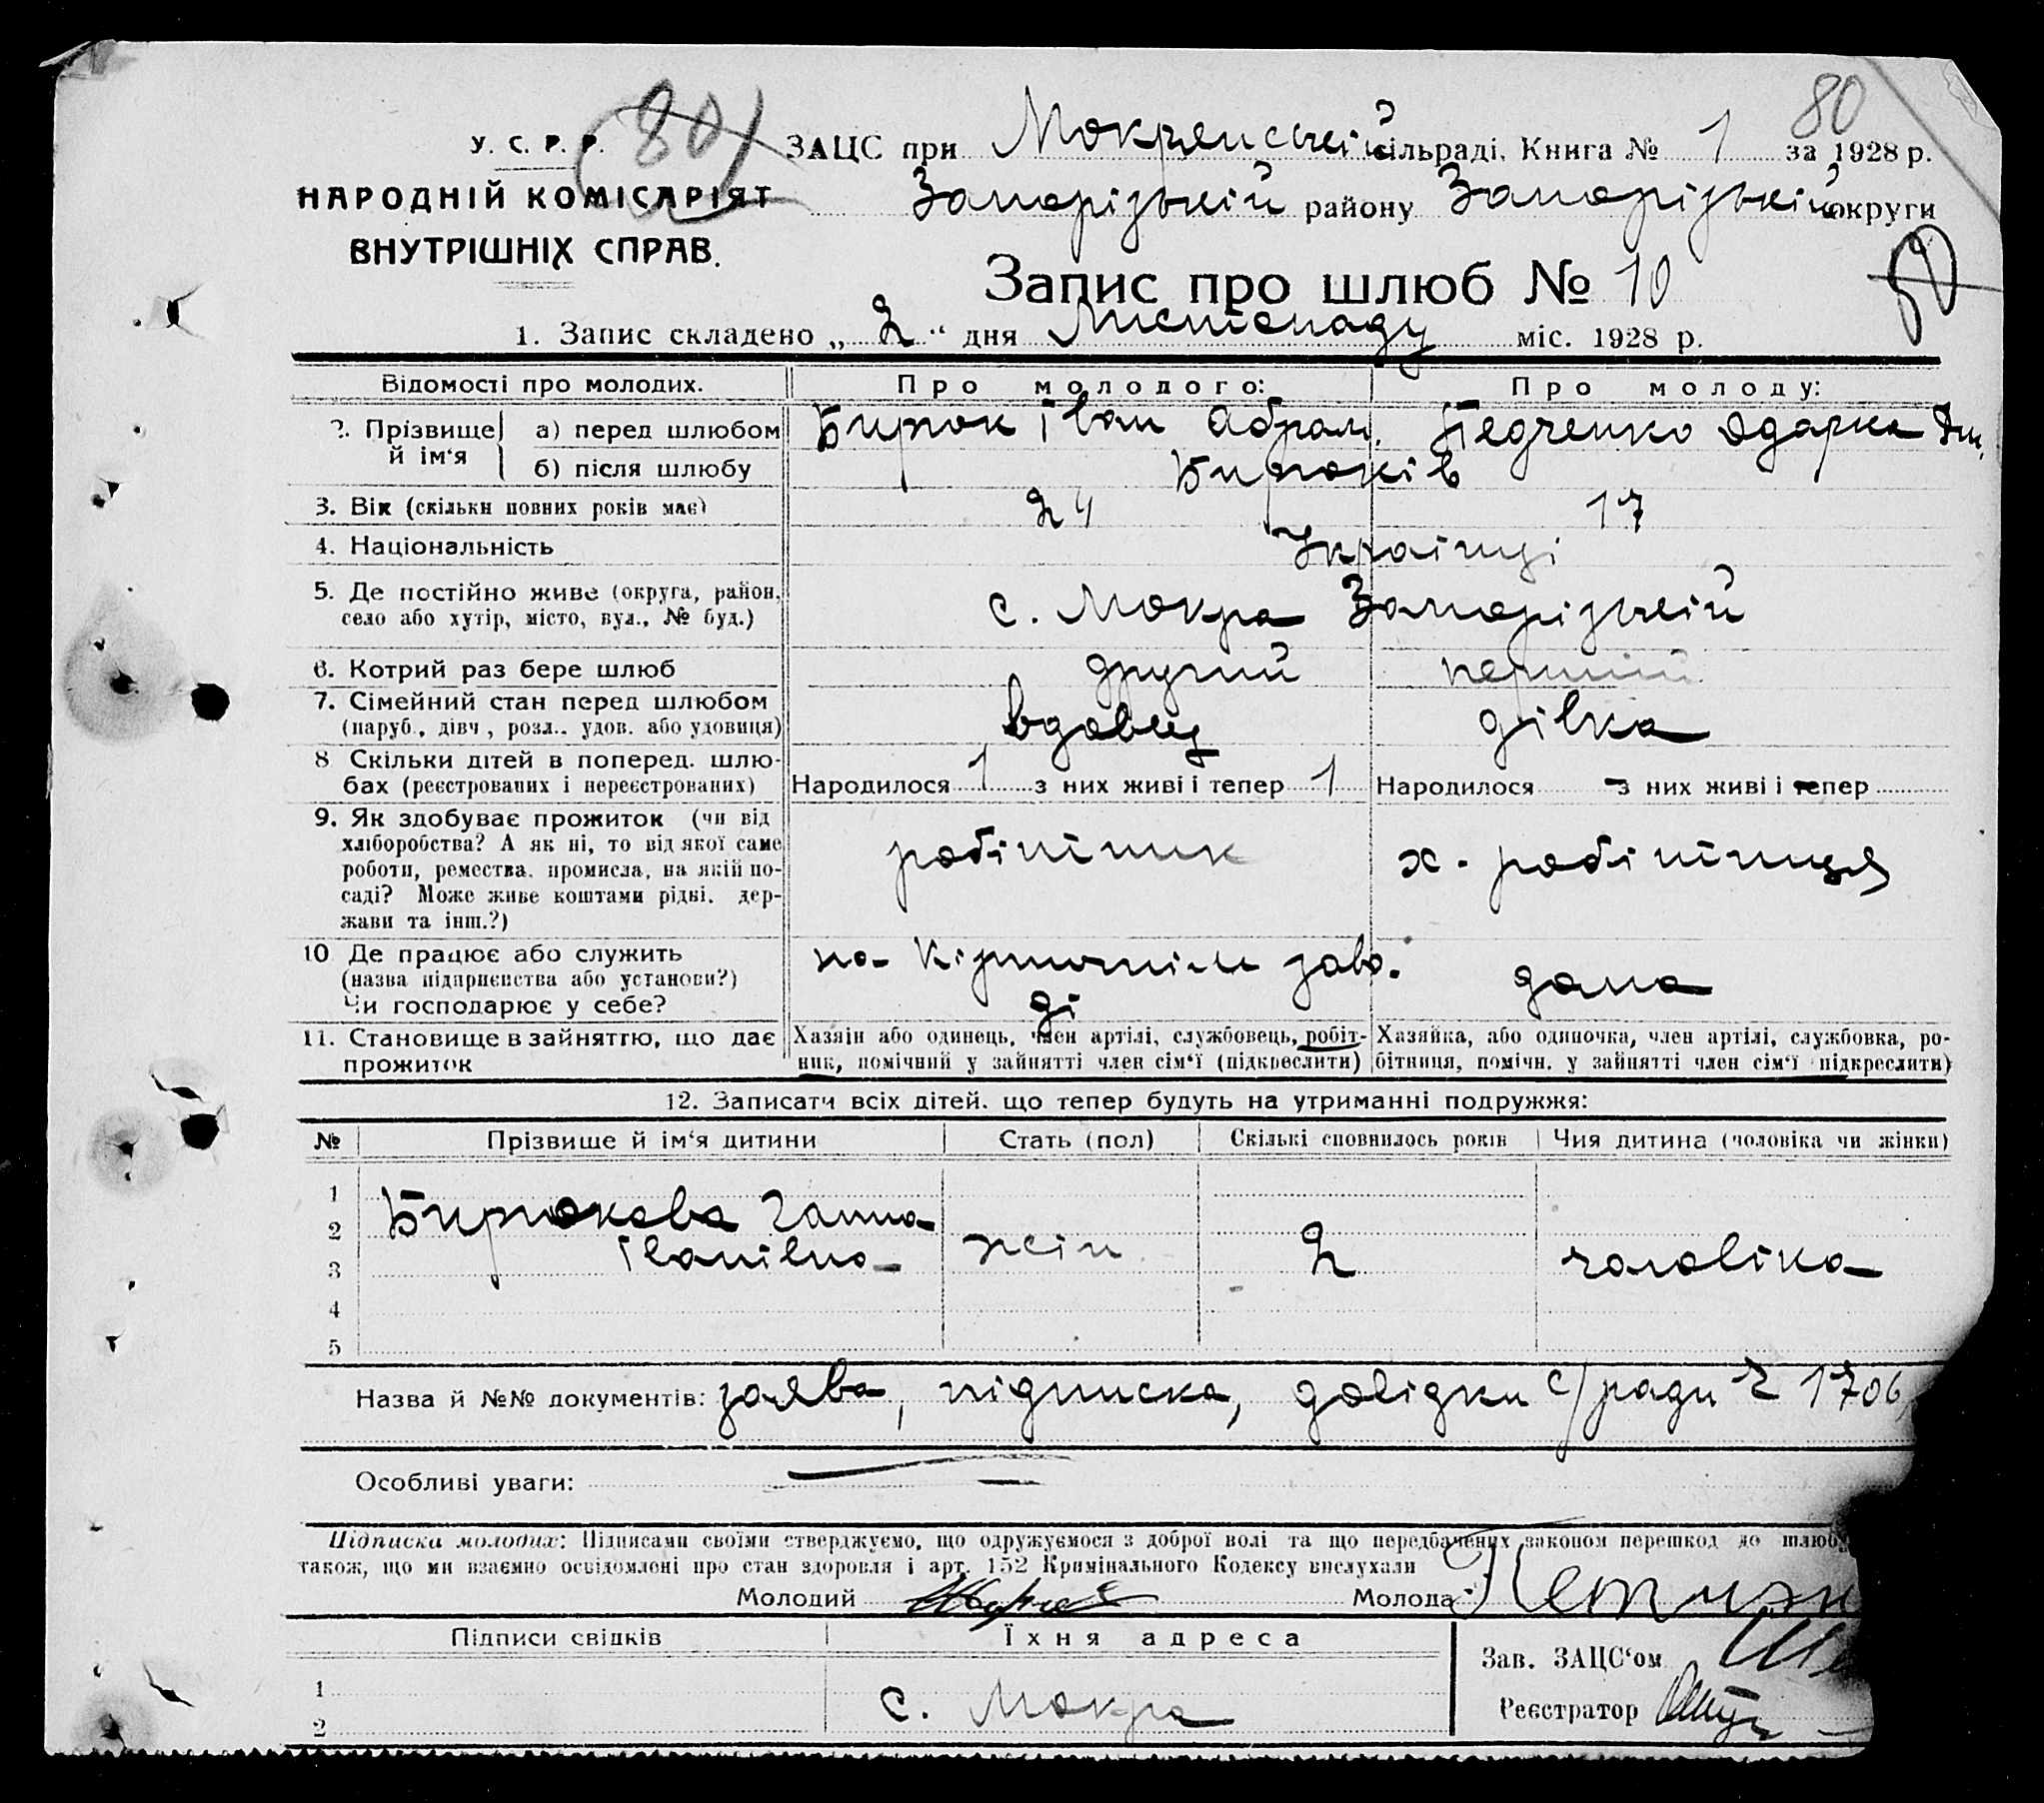 80
80
У. С. Р. Р.
НАРОДНІЙ КОМІСАРІЯТ
ВНУТРІШНІХ СПРАВ.
ЗАЦС при Мокрянській сільраді. Книга № 1 за 1928 р.
Запорізькій району Запорізькій округи
Запис про шлюб № 10
1. Запис складено „2“ дня Листопаду міс. 1928 р.
Відомості про молодих. Про молодого: Про молоду:
2. Прізвище й ім‘я
а) перед шлюбом Бирюк Іван Абрам. Педченко Одарка
б) після шлюбу Бирюків
3. Вік (скільки повних років має) 24 17
4. Національність Українці
5. Де постійно живе (округа, район, село або хутір, місто, вул., № буд.) с. Мокра Запорізькій
6. Котрий раз бере шлюб другий перший
7. Сімейний стан перед шлюбом вдовец дівка
(паруб., дівч., розл., удов. або удовиця)
8 Скільки дітей в поперед. шлюбах (реєстрованих і нереєстрованих) Народилося 1 з них живі і тепер 1 Народилося - з них живі і тепер -
9. Як здобуває прожиток (чи від
хліборобства? А як ні, то від якої саме
роботи, ремества, промисла, на якій по-
саді? Може живе коштами рідні, дер-
жави та інш.?)
робітник х. робітниця
10 Де працює або служить
(назва підприєнства або установи?)
Чи господарює у себе?
на Кірпичнім заво.
ді
дома
11. Становище в зайняттю, що дає
прожиток
Хазяін або одинець, член артілі, службовець, робіт-
ник, помічний у зайнятті член сім‘ї (підкреслити)
Хазяйка, або одиночка, член артілі, службовка, ро-
бітниця, помічн. у зайнятті член сім‘ї підкреслити)
12. Записати всіх дітей, що тепер будуть на утриманні подружжя:
№ Прізвище й ім‘я дитини Стать (пол) Скількі сповнилось років Чия дитина (чоловіка чи жінки)
1
2 Бирюкова Ганна
3 Іванівна жін. 2 чоловіка
4
5
Назва й №№ документів: заява, підписка, довідки с/ради 1706
Особливі уваги: —
Підписка молодих: Підписами своїми стверджуємо, що одружуємося з доброї волі та що передбачених законом перешкод до шлюбу
також, що ми взаємно освідомлені про стан здоровля і арт. 152 Кримінального Кодексу вислухали
Молодий Молода
Підписи свідків Їхня адреса
1
2 с. Мокра
Зав. ЗАЦС‘ом
Реєстратор